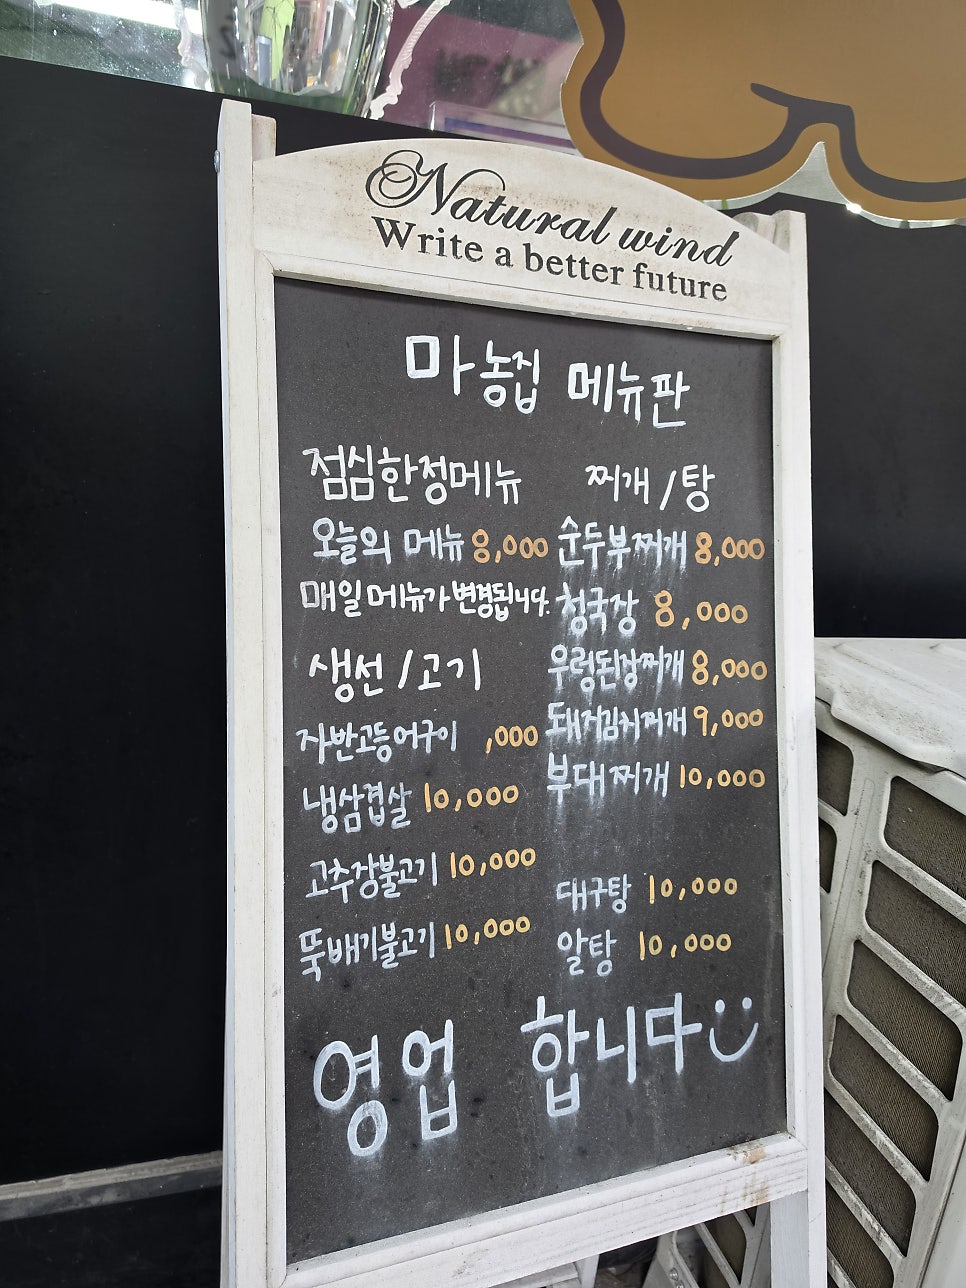 Natural wind
Write a better future
마농집 메뉴판
점심한정메뉴
오늘의 메뉴 8,000
매일메뉴가 변경됩니다.
생선/고기
자반고등어구이 ,000
냉삼겹살 10,000
고추장불고기 10,000
뚝배기불고기 10,000
찌개/탕
순두부찌개 8,000
청국장 8,000
우렁된장찌개 8,000
돼지김치찌개 9,000
부대찌개 10,000
대구탕 10,000
알탕 10,000
영업 합니다